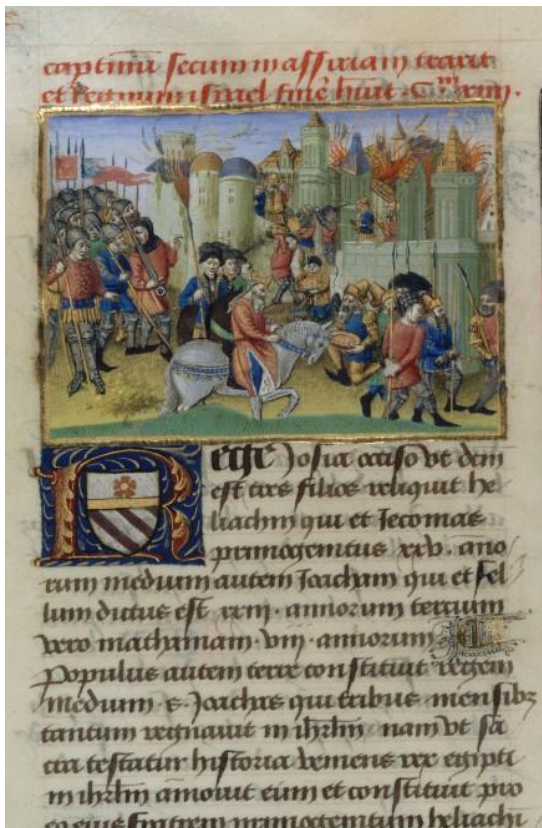 captiuū secum in assiriam traxit
et regnum israel fine huit
Rege Josia occiso vt dem
est tres filios reliquit he
liachim qui et Jeconias
primogenitus xxv. anno
rum medium autem Joacham qui et sel
lum dictus est xxiij. annorum tercium
vero mathaniam. viij. annorum
Populus autem terre constituit regem
medium .s. Joachas qui tribus mensibz
tantum regnauit in ihrlm nam vt sa
cra testatur historia veniens rex egipti
in ihrlm amouit eum et constituit pro
eo eius fratrem primogenitum heliachi